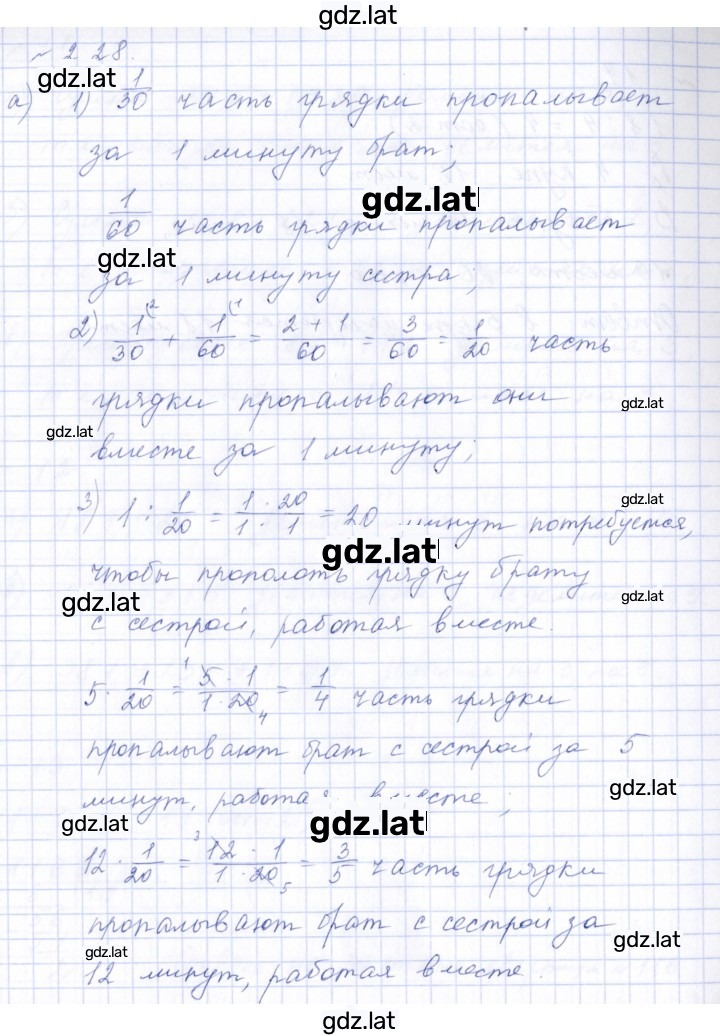 gdz.lat
№ 2 28.
gdz.lat
а) 1) 1/30 часть грядки пропалывает
за 1 минуту брат;
gdz.lat
1/60 часть грядки пропалывает
gdz.lat
за 1 минуту сестра;
2) 1/30 (2 + 1/60 (1 = 2+1/60 = 3/60 = 1/20 часть
грядки пропалывают они
gdz.lat
gdz.lat
вместе за 1 минуту;
gdz.lat
3) 1 : 1/20 = 1·20/1·1 = 20 минут потребуется,
gdz.lat
чтобы прополоть грядку брату
gdz.lat
gdz.lat
с сестрой, работая вместе.
5 · 1/20 = 5·1/1·20 = 1/4 часть грядки
пропалывают брат с сестрой за 5
gdz.lat
минут, работая вместе;
gdz.lat
gdz.lat
12 · 1/20 = 12·1/1·20 = 3/5 часть грядки
пропалывают брат с сестрой за
gdz.lat
gdz.lat
12 минут, работая вместе.
gdz.lat